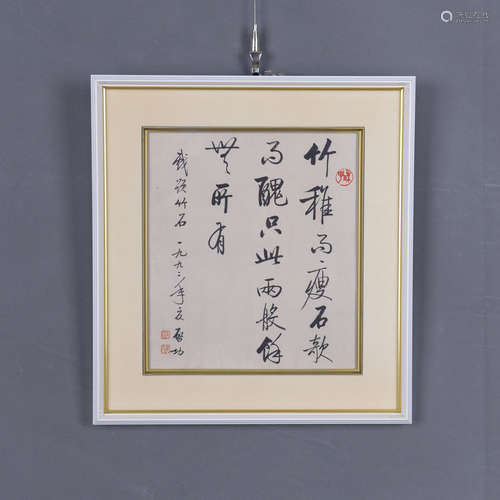 竹稚而瘦石欹
而醜只此兩般餘
無所有
戏题竹石 一九九二年夏 启功